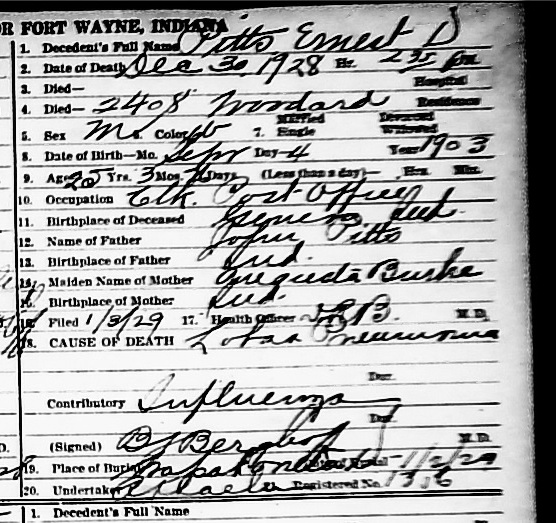 OR FORT WAYNE, INDIANA
1. Decedent's Full Name Pitts Ernest D
2. Date of Death Dec 30 1928 Hr. 2 35 pm
3. Died— Hospital
4. Died— 2408 Woodard Residence
5. Sex M Color 7. Married Single Divorced Widowed
8. Date of Birth—Mo. Sept Day—4 Year 1903
9. Age 25 Yrs. 3 Mos. Days (Less than a day)— Hrs. Min.
10. Occupation Clk. Post Office
11. Birthplace of Deceased Geneva Ind.
12. Name of Father John Pitts
13. Birthplace of Father Ind.
14. Maiden Name of Mother Augusta Burke
15. Birthplace of Mother Ind.
16. Filed 1/3/29 17. Health Officer M.D.
18. CAUSE OF DEATH Lobar Pneumonia
Dur.
Contributory Influenza
Dur.
(Signed) B J Berghoff M.D.
19. Place of Burial Wapakoneta 1/2/29
20. Undertaker Registered No. 1316
1. Decedent's Full Name